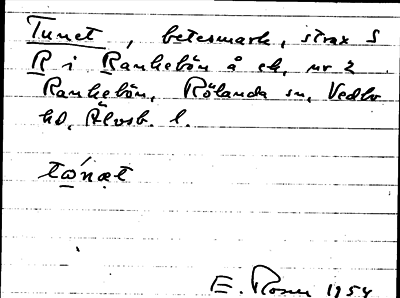 Tunet, betesmark, strax S
R i Rankebön å ek. nr 2
Rankebön, Rölanda sn, Vedbo
hd, Älvsb. l.
tωnæt
E. Rosen 1954